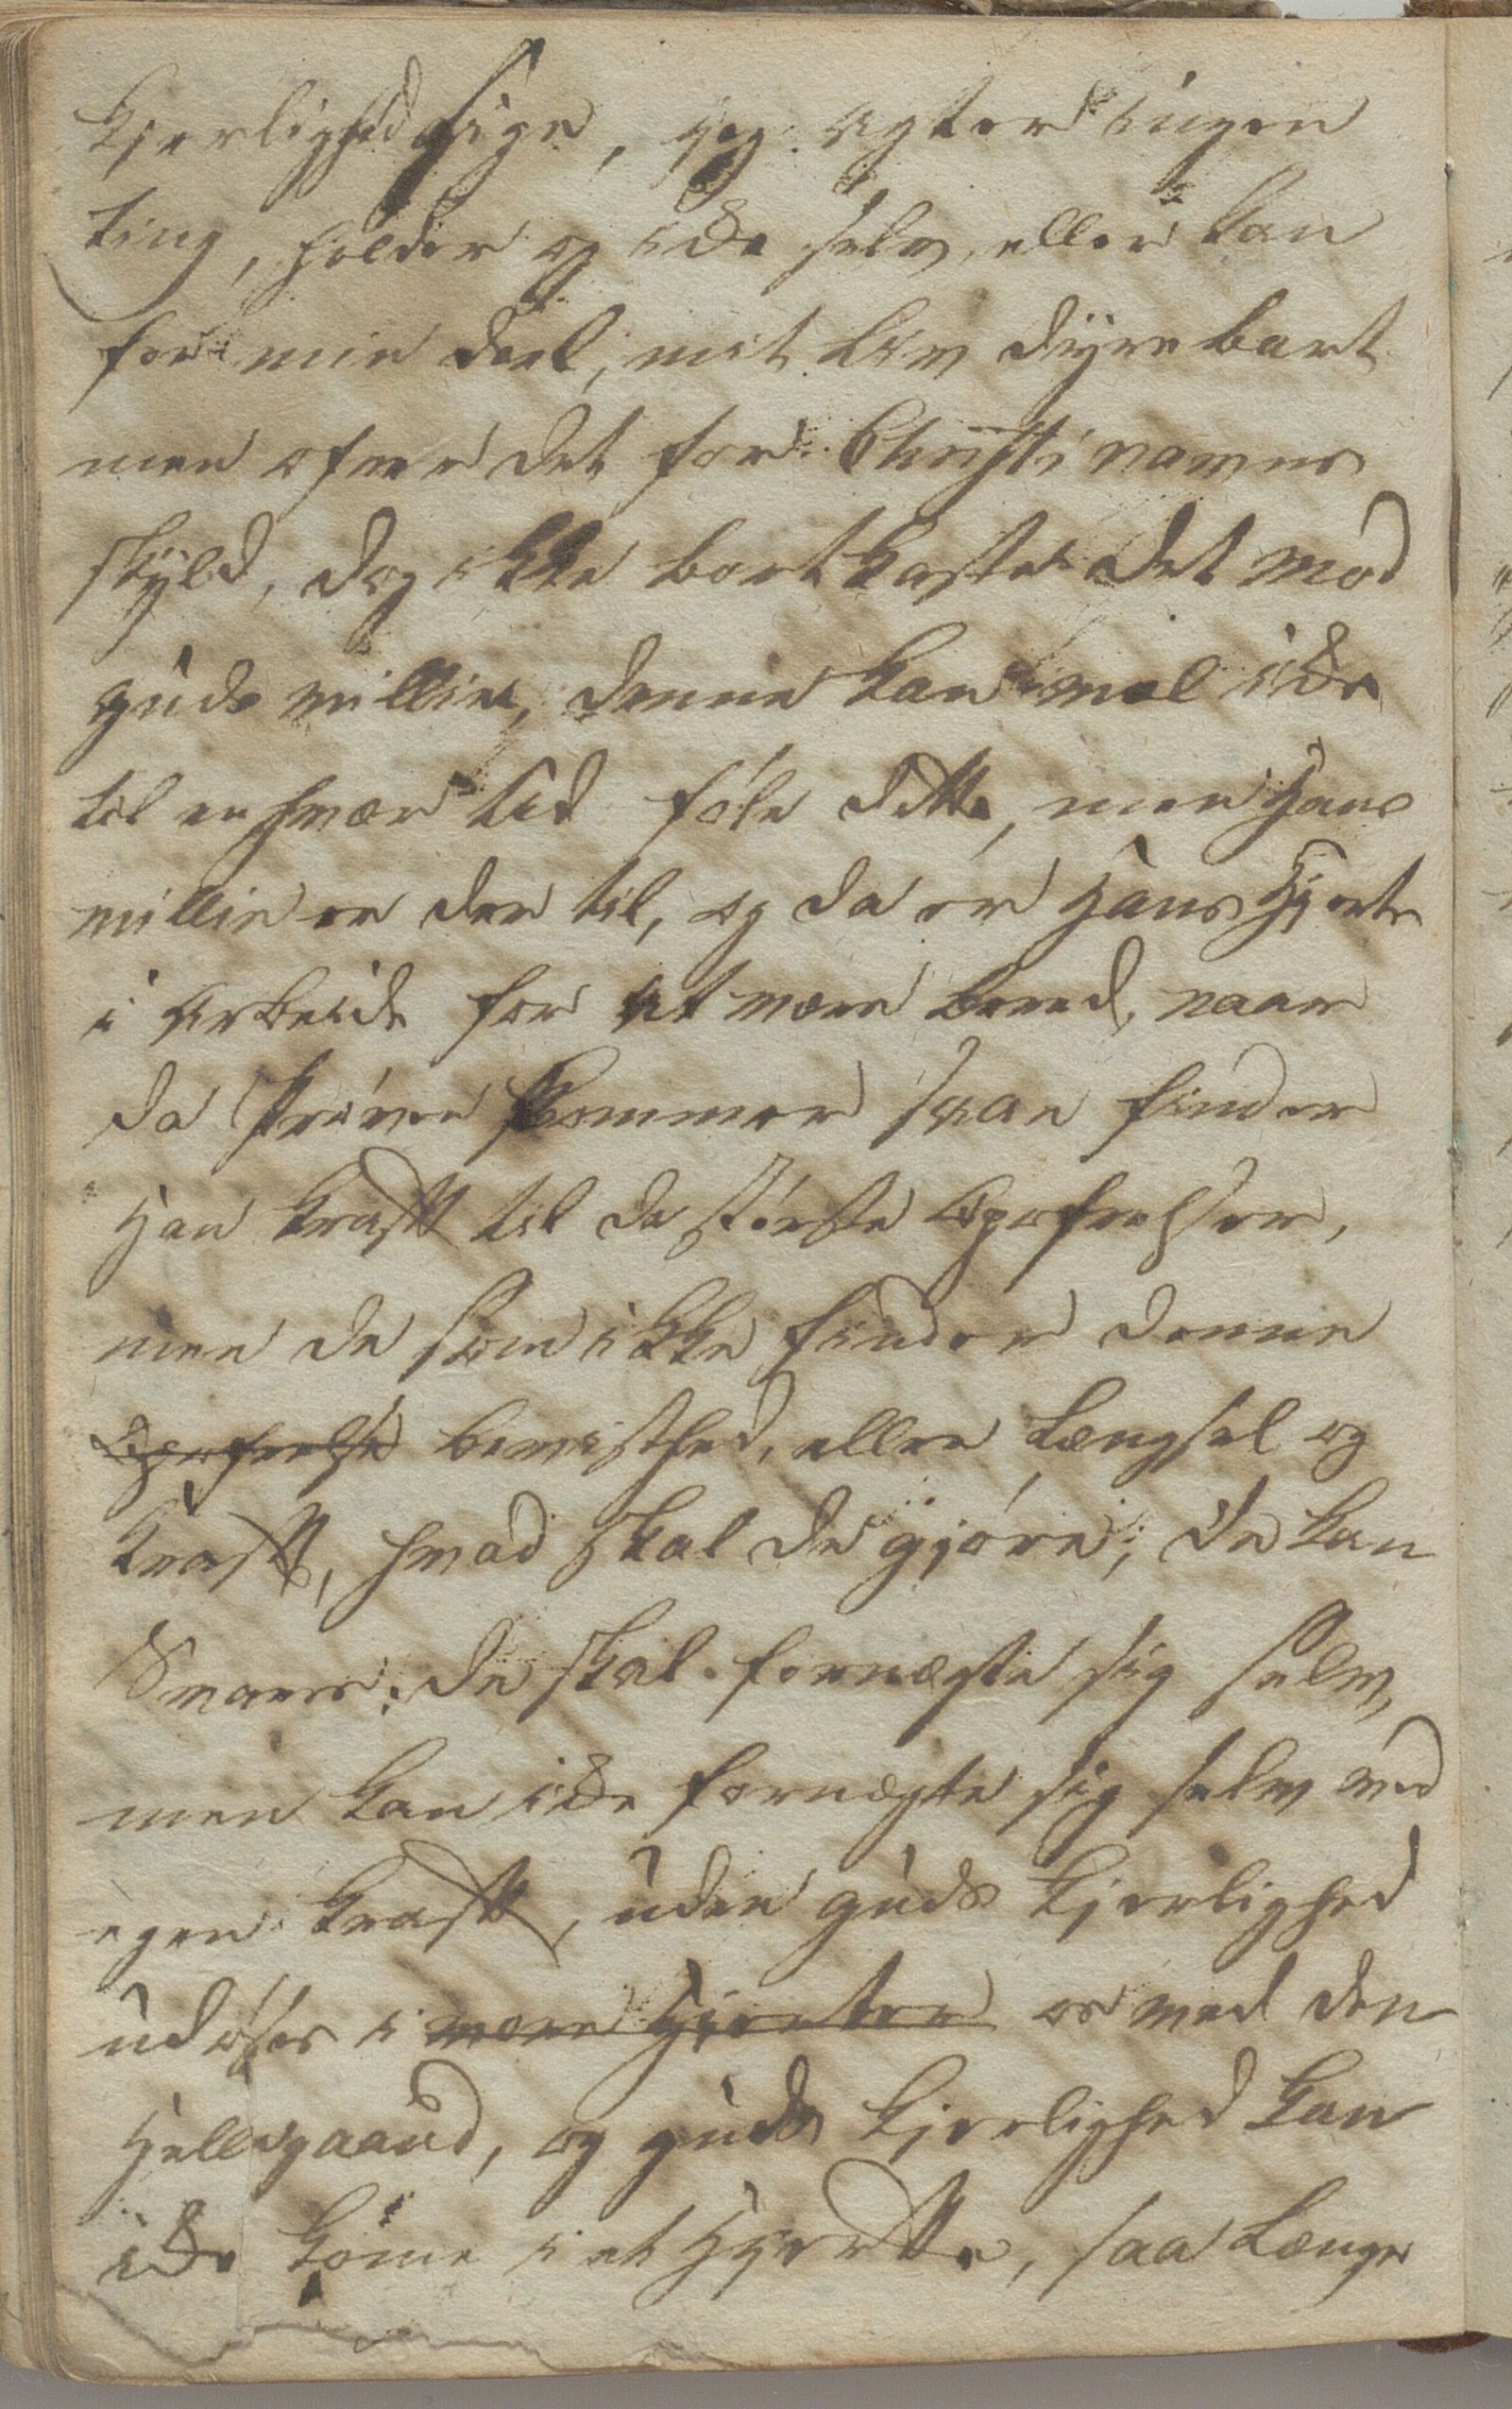 Kjerlighed sige, jeg agter ingen
ting, holder og ikke selv eller kan
for min deel, mit Liv dyrebart
men ofrer det for Christi navns
skyld, dog ikke bortkaste det mod
guds villie, denne kan vel ikke
til en hver tid føle dette, men Hans
villie er der til, og da er Hans Hjerte
i arbeide for at være bered, naar
da Prøven kommer saa finder
Han kraft til de største Opofrelser,
men de som ikke finder denne
Opofrelse bevisthed, eller Længsel og
kraft, hvad skal de gjøre; de kan
Svare: de skal fornægte sig selv,
men kan ikke fornægte sig selv ved
egen kraft, uden guds kjerlighed
udøses i vore Hjerter os ved den
Helligaand, og guds kjerlighed kan
ikke kome i et Hjertte, saa Længe